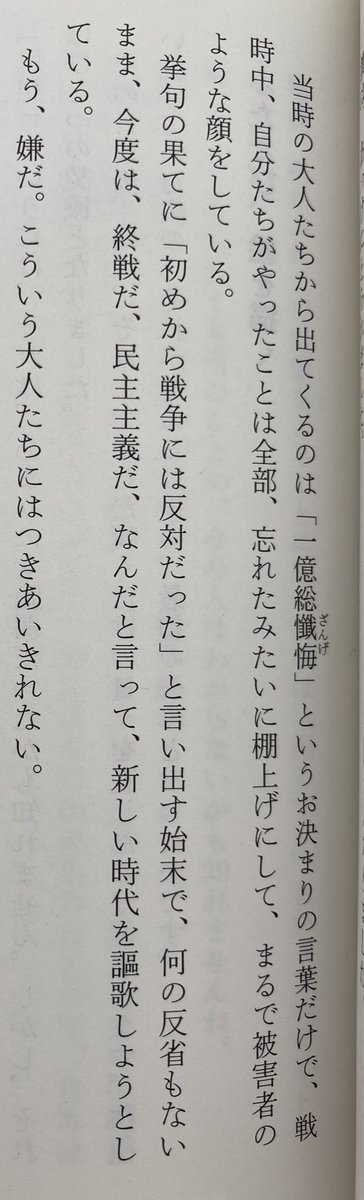 当時の大人たちから出てくるのは「一億総懺悔」というお決まりの言葉だけで、戦
時中、自分たちがやったことは全部、忘れたみたいに棚上げにして、まるで被害者の
ような顔をしている。
挙句の果てに「初めから戦争には反対だった」と言い出す始末で、何の反省もない
まま、今度は、終戦だ、民主主義だ、なんだと言って、新しい時代を謳歌しようとし
ている。
もう、嫌だ。こういう大人たちにはつきあいきれない。
ざんげ